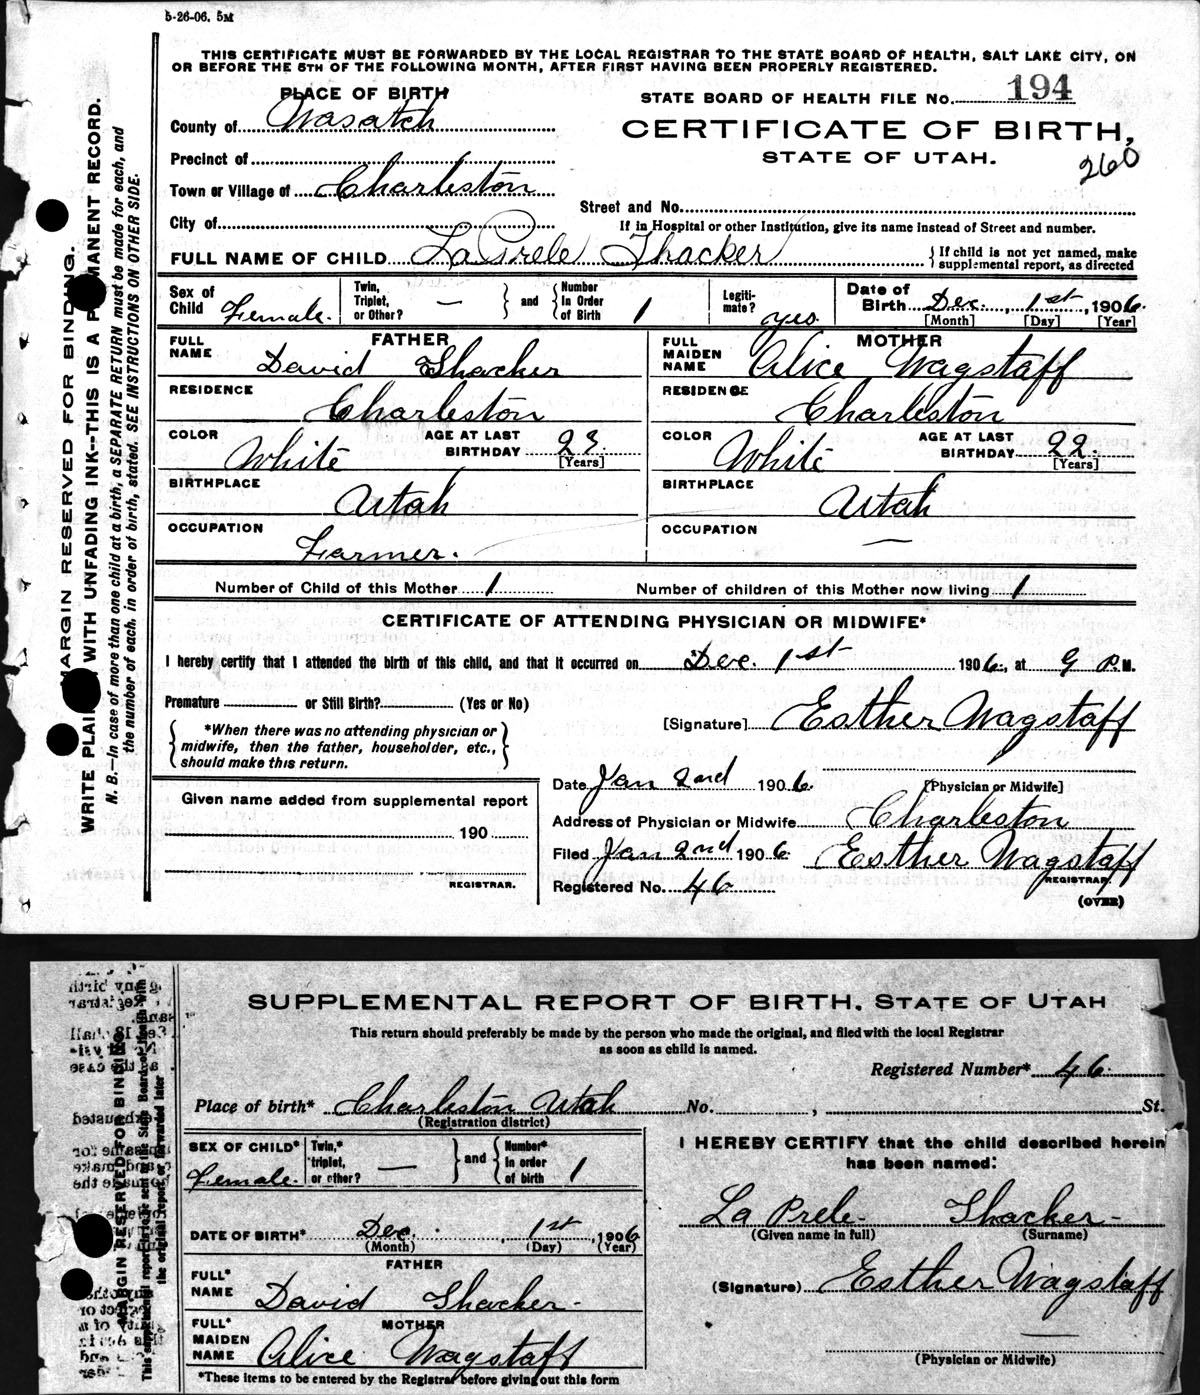 5-26-06. 5M
THIS CERTIFICATE MUST BE FORWARDED BY THE LOCAL REGISTRAR TO THE STATE BOARD OF HEALTH, SALT LAKE CITY, ON
OR BEFORE THE 5TH OF THE FOLLOWING MONTH, AFTER FIRST HAVING BEEN PROPERLY REGISTERED.
PLACE OF BIRTH
STATE BOARD OF HEALTH FILE No. 194
County of Wasatch
CERTIFICATE OF BIRTH,
STATE OF UTAH.
260
Precinct of
Town or Village of Charleston
Street and No.
City of
If in Hospital or other Institution, give its name instead of Street and number.
FULL NAME OF CHILD La Prele Thacker {If child is not yet named, make
supplemental report, as directed
Sex of Child Female. Twin, Triplet, or Other? — } and { Number in Order of Birth 1 Legiti-mate? yes Date of Birth Dec. 1st, 1906.
[Month] [Day] [Year]
FATHER MOTHER
FULL NAME David Thacker FULL MAIDEN NAME Alice Wagstaff
RESIDENCE Charleston RESIDENCE Charleston
COLOR White AGE AT LAST BIRTHDAY 23. [Years] COLOR White AGE AT LAST BIRTHDAY 22. [Years]
BIRTHPLACE Utah BIRTHPLACE Utah
OCCUPATION Farmer. OCCUPATION —
Number of Child of this Mother 1 Number of children of this Mother now living 1
CERTIFICATE OF ATTENDING PHYSICIAN OR MIDWIFE*
I hereby certify that I attended the birth of this child, and that it occurred on Dec. 1st 1906, at 9 P.M.
Premature or Still Birth? (Yes or No)
[Signature] Esther Wagstaff
{*When there was no attending physician or
midwife, then the father, householder, etc.,
should make this return.}
Date Jan 2nd 1906. [Physician or Midwife]
Given name added from supplemental report
Address of Physician or Midwife Charleston
190
Filed Jan 2nd 1906 Esther Wagstaff
REGISTRAR.
REGISTRAR.
Registered No. 46
(OVER)
MARGIN RESERVED FOR BINDING.
WRITE PLAINLY WITH UNFADING INK--THIS IS A PERMANENT RECORD.
N. B.—In case of more than one child at a birth, a SEPARATE RETURN must be made for each, and
the number of each, in order of birth, stated. SEE INSTRUCTIONS ON OTHER SIDE.
SUPPLEMENTAL REPORT OF BIRTH, STATE OF UTAH
This return should preferably be made by the person who made the original, and filed with the local Registrar
as soon as child is named.
Registered Number* 46.
Place of birth* Charleston Utah No. , St.
(Registration district)
SEX OF CHILD* Female. Twin,* triplet, or other? — } and { Number* in order of birth 1
I HEREBY CERTIFY that the child described herein
has been named:
La Prele Thacker
(Given name in full) (Surname)
DATE OF BIRTH* Dec. 1st, 1906
(Month) (Day) (Year)
FATHER
FULL* NAME David Thacker
(Signature) Esther Wagstaff
MOTHER
FULL* MAIDEN NAME Alice Wagstaff
(Physician or Midwife)
*These items to be entered by the Registrar before giving out this form
MARGIN RESERVED FOR BINDING
This supplemental report to be sent to the State Board of Health with
the original report, or forwarded later